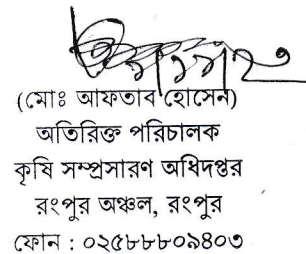 (মোঃ আফতাব হোসেন)
অতিরিক্ত পরিচালক
কৃষি সম্প্রসারণ অধিদপ্তর
রংপুর অঞ্চল, রংপুর
ফোন : ০২৫৮৮৮০৯৪০৩